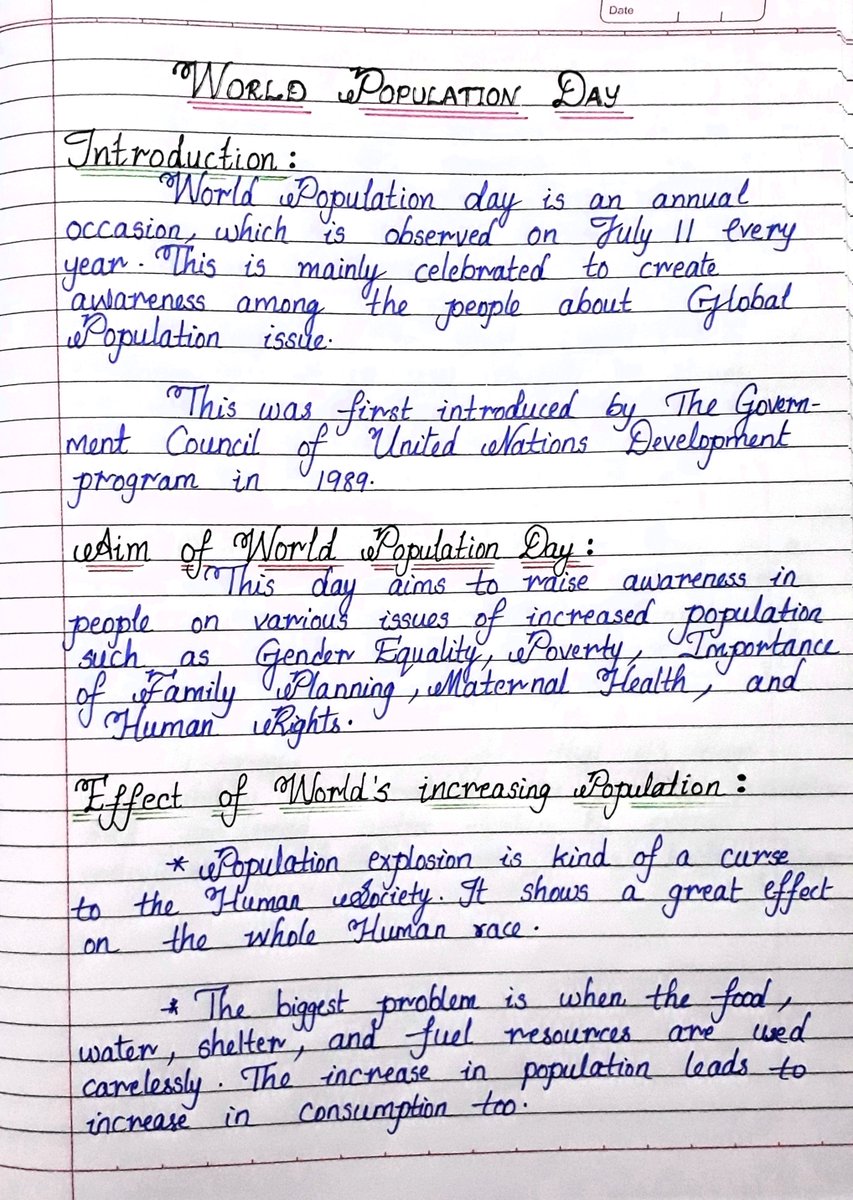 Date
WORLD POPULATION DAY
Introduction:
World Population day is an annual
occasion, which is observed on July 11 Every
year. This is mainly celebrated to create
awareness among the people about Global
Population issue.
This was first introduced by The Govern-
ment Council of United Nations Development
program in 1989.
Aim of World Population Day:
This day aims to raise awareness in
people on various issues of increased population
such as Gender Equality, Poverty, Importance
of Family Planning, Maternal Health, and
Human Rights.
Effect of World's increasing Population:
* Population explosion is kind of a curse
to the Human Society. It shows a great effect
on the whole Human race.
* The biggest problem is when the food,
water, shelter, and fuel resources are used
carelessly. The increase in population leads to
increase in consumption too.